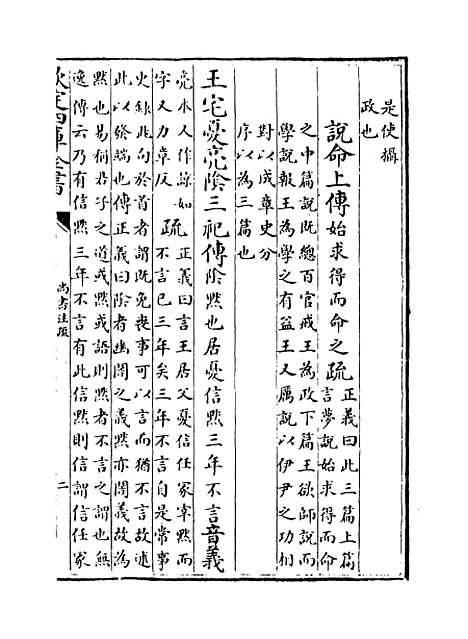 是使攝
政也
說命上傳始求得而命之疏正義曰此三篇上篇
言夢說始求得而命
之中篇說既總百官戒王為政下篇王欲師說而
學說報王為學之有益王又厲說以伊尹之功相
對以成章史分
序以為三篇也
王宅憂亮陰三祀傳陰黙也居憂信黙三年不言音義
亮本人作諒如
字又力章反疏正義曰言王居父憂信任冡宰黙而
不言已三年矣三年不言自是常事
史錄此句於首者謂既免喪事可以言而猶不言故述
此以發端也傳正義曰陰者幽闇之義黙亦闇義故為
黙也易稱君子之道或黙或語則黙者不言之謂也無
逸傳云乃有信黙三年不言有此信黙則信謂信任冡
欽定四庫全書
尚書注疏
二